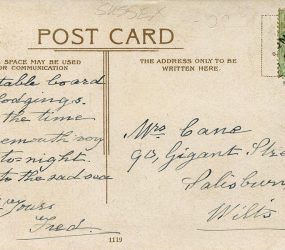 SUSSEX
POST CARD
SPACE MAY BE USED
FOR COMMUNICATION
THE ADDRESS ONLY TO BE
WRITTEN HERE.
table board
lodgings.
the time
to-night.
to the sad sea
Yours
Fred.
Mrs Cane
90, Gigant Stre
Salisbury
Wilts
1119